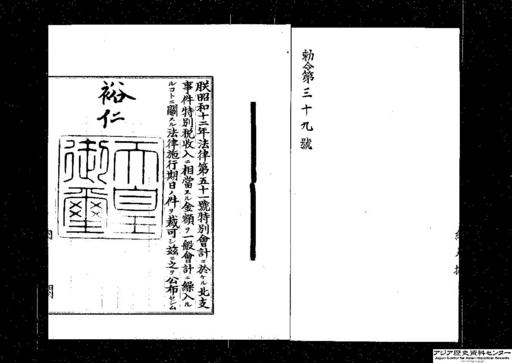 勅令第三十九號
朕昭和十二年法律第五十一號特別會計ニ於ケル北支
事件特別税收入ニ相當スル金額ヲ一般會計ニ繰入ル
ルコトニ關スル法律施行期日ノ件ヲ裁可シ茲ニ之ヲ公布セシム
裕仁
天皇
御璽
内閣
アジア歴史資料センター
Japan Center for Asian Historical Records